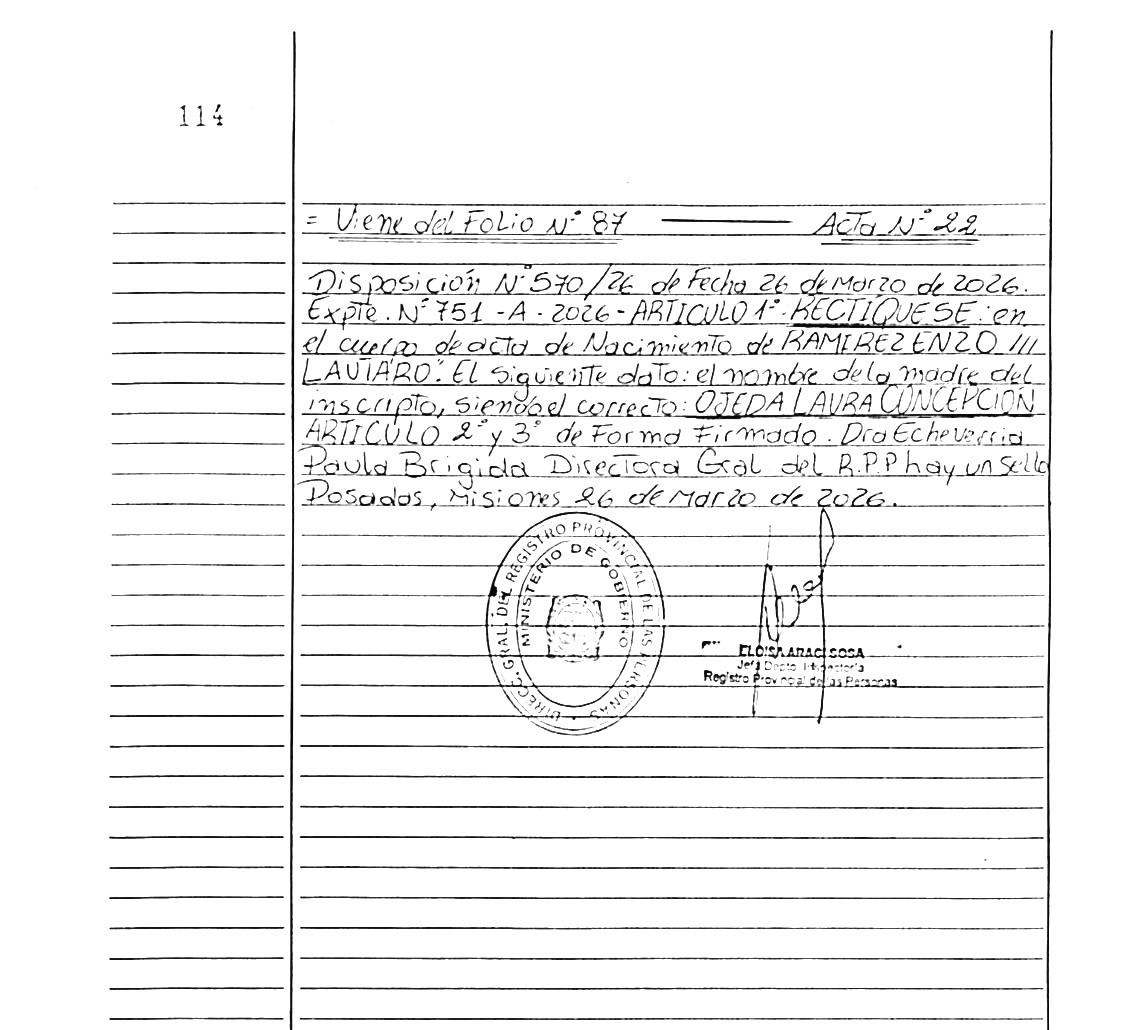 114
= Viene del Folio N° 87 ——— Acta N° 22
Disposición N° 570/26 de Fecha 26 de Marzo de 2026.
Expte. N° 751 - A - 2026 - ARTICULO 1° - RECTIQUESE: en
el cuerpo de acta de Nacimiento de RAMIREZ ENZO ///
LAUTARO". El siguiente dato: el nombre de la madre del
inscripto, siendo el correcto: OJEDA LAURA CONCEPCIÓN
ARTICULO 2° y 3° de Forma Firmado. Dra Echeverria
Paula Brigida Directora Gral del R.P.P hay un Sello
Posadas, Misiones 26 de Marzo de 2026.
DIRECC. GRAL. DEL REGISTRO PROVINCIAL DE LAS PERSONAS
MINISTERIO DE GOBIERNO
ELOISA ARACI SOSA
Jefa Depto.
Registro Provincial de las Personas